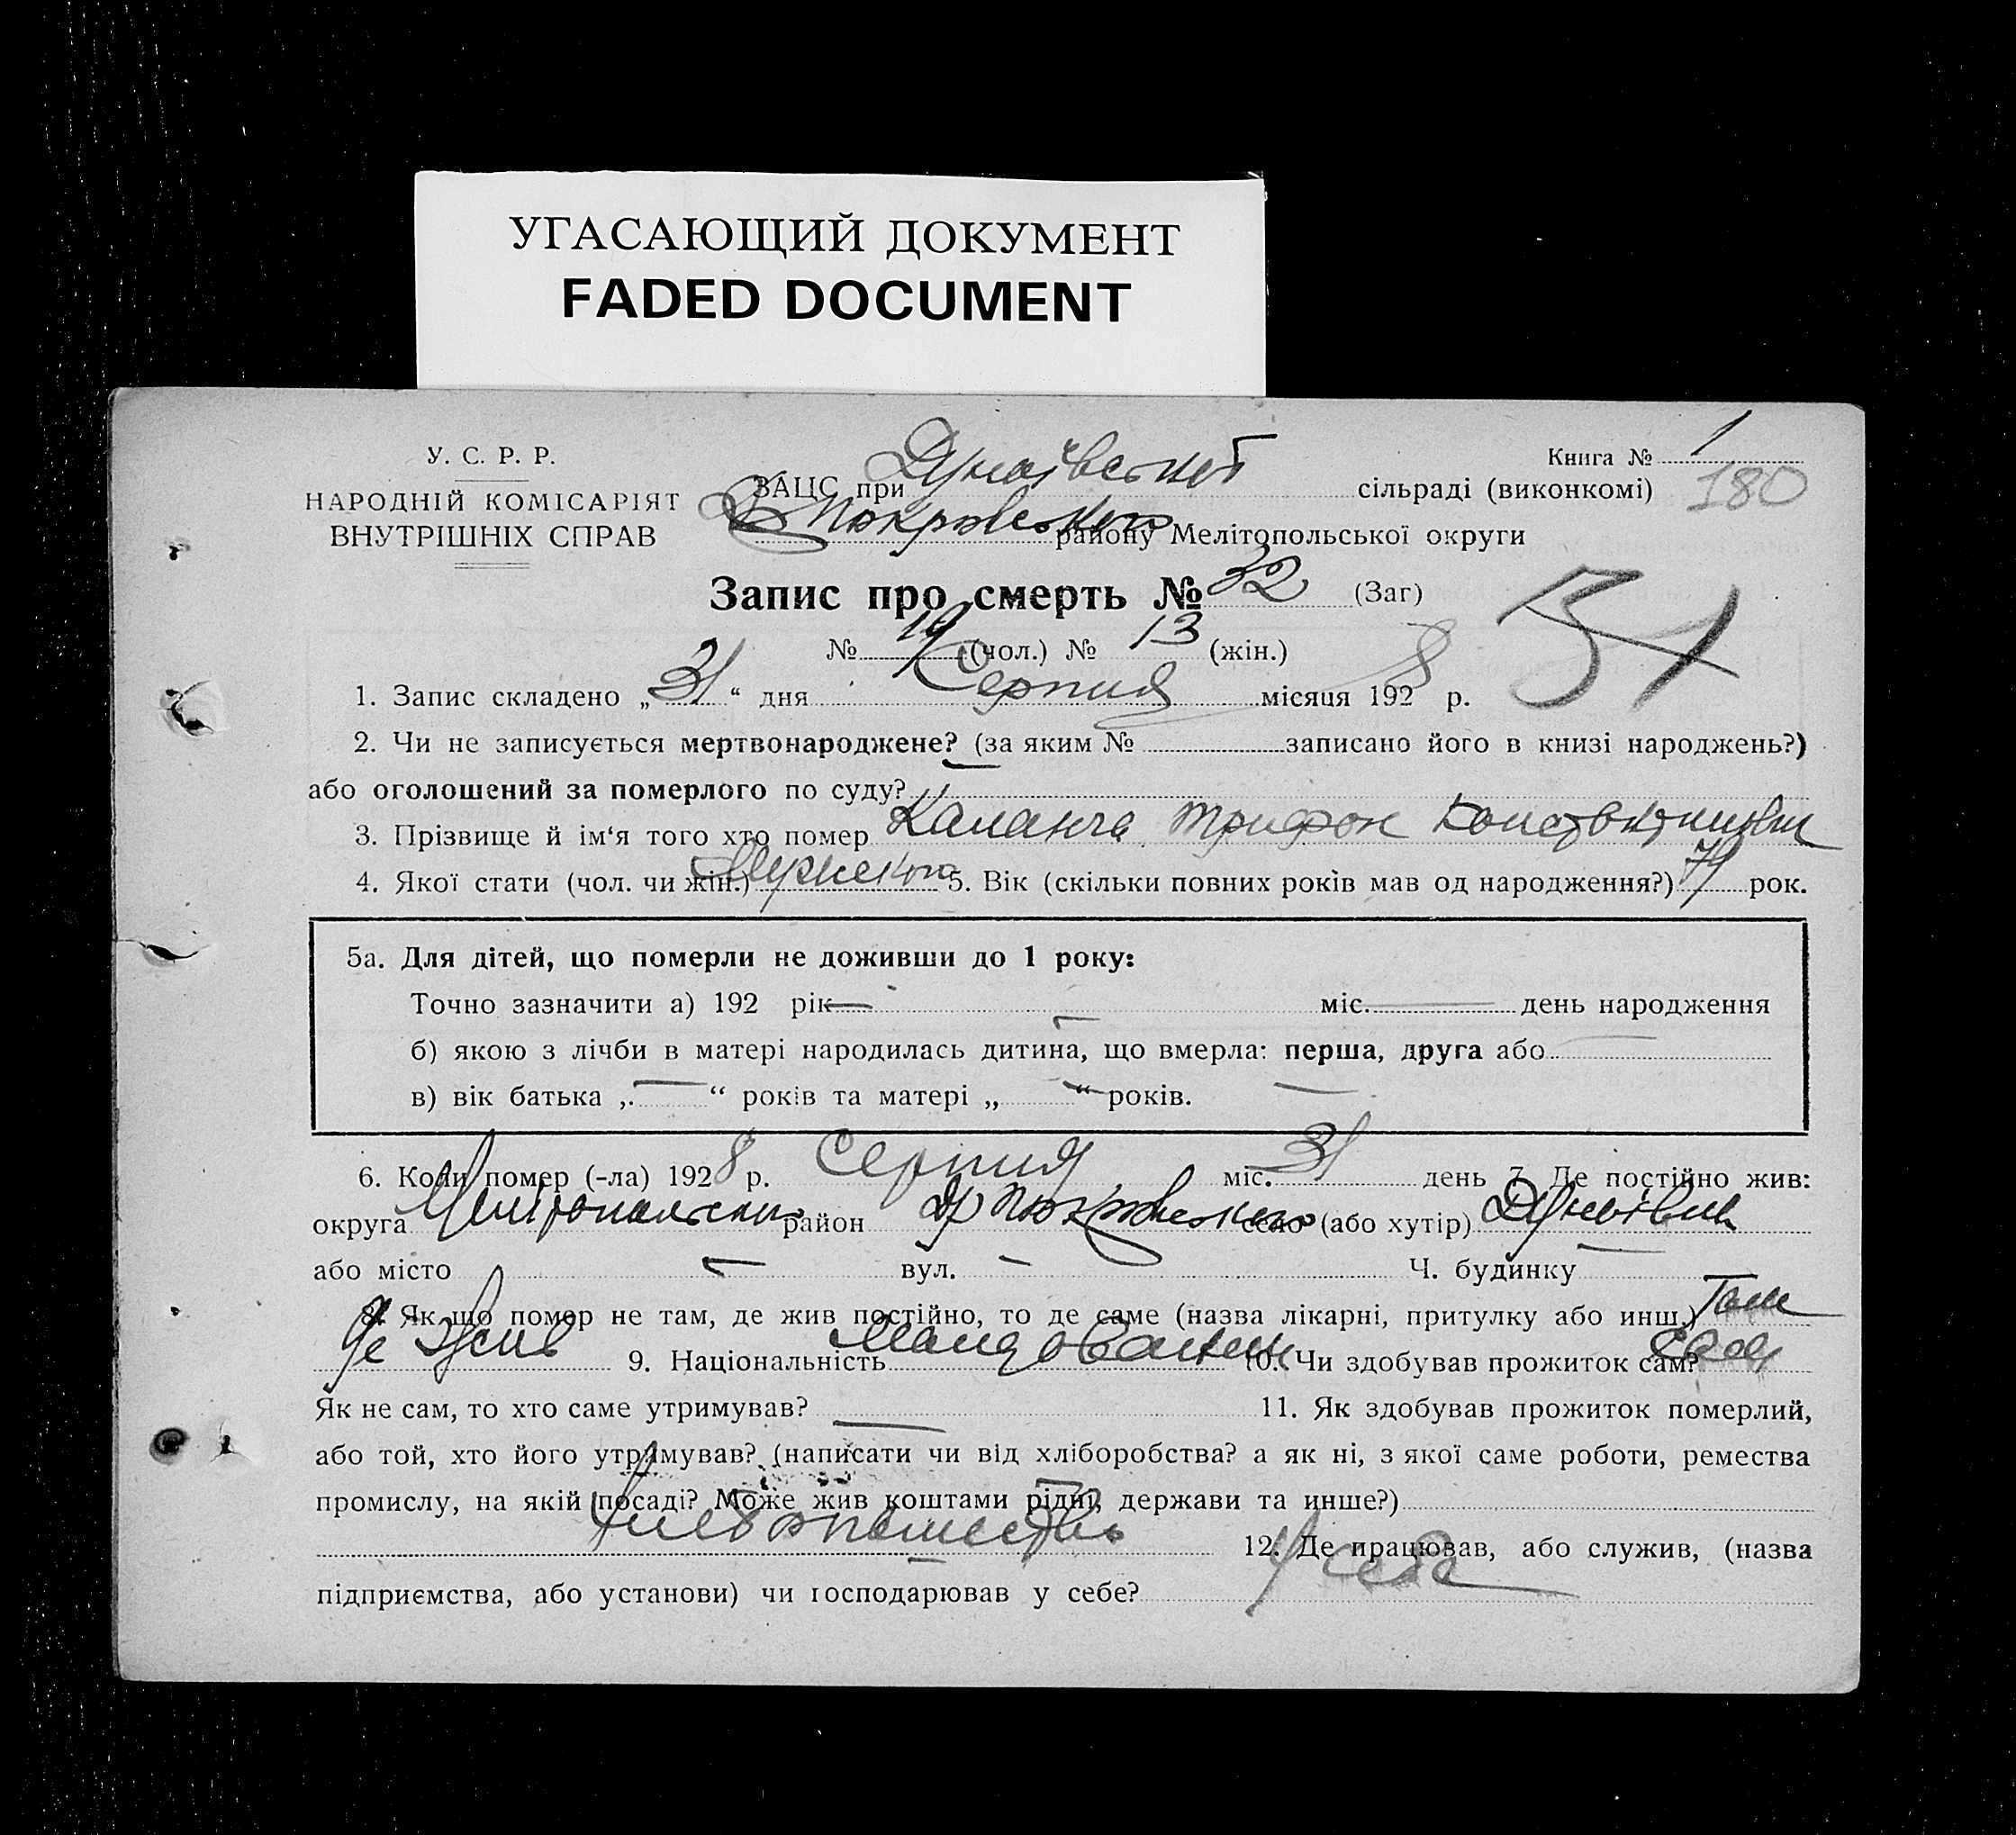 УГАСАЮЩИЙ ДОКУМЕНТ
FADED DOCUMENT
У. С. Р. Р.
НАРОДНІЙ КОМІСАРІЯТ
ВНУТРІШНІХ СПРАВ
Книга № 1
180
ЗАЦС при Дунаївській сільраді (виконкомі)
Покровського району Мелітопольської округи
Запис про смерть № 32 (Заг)
№ 19 (чол.) № 13 (жін.)
1. Запис складено „31“ дня Серпня місяця 1928 р.
2. Чи не записується мертвонароджене? (за яким № записано його в книзі народжень?)
або оголошений за померлого по суду?
3. Прізвище й ім‘я того хто помер Каланча Трифон Константинович
4. Якої стати (чол. чи жін.) Мужского 5. Вік (скільки повних років мав од народження?) 71 рок.
5а. Для дітей, що померли не доживши до 1 року:
Точно зазначити а) 192 рік — міс. — день народження
б) якою з лічби в матері народилась дитина, що вмерла: перша, друга або
в) вік батька „ — “ років та матері „ — “ років.
6. Коли помер (-ла) 1928 р. Серпня міс. 31 день 7. Де постійно жив:
округа Мелітопольська район Покровського село (або хутір) Дунаївка
або місто — вул. — Ч. будинку —
8. Як що помер не там, де жив постійно, то де саме (назва лікарні, притулку або инш.) Там
де жив 9. Національність Молдованин 10. Чи здобував прожиток сам? сам
Як не сам, то хто саме утримував? — 11. Як здобував прожиток померлий,
або той, хто його утримував? (написати чи від хліборобства? а як ні, з якої саме роботи, ремества
промислу, на якій посаді? Може жив коштами рідні, держави та инше?)
12. Де працював, або служив, (назва
підприємства, або установи) чи господарював у себе? У себе